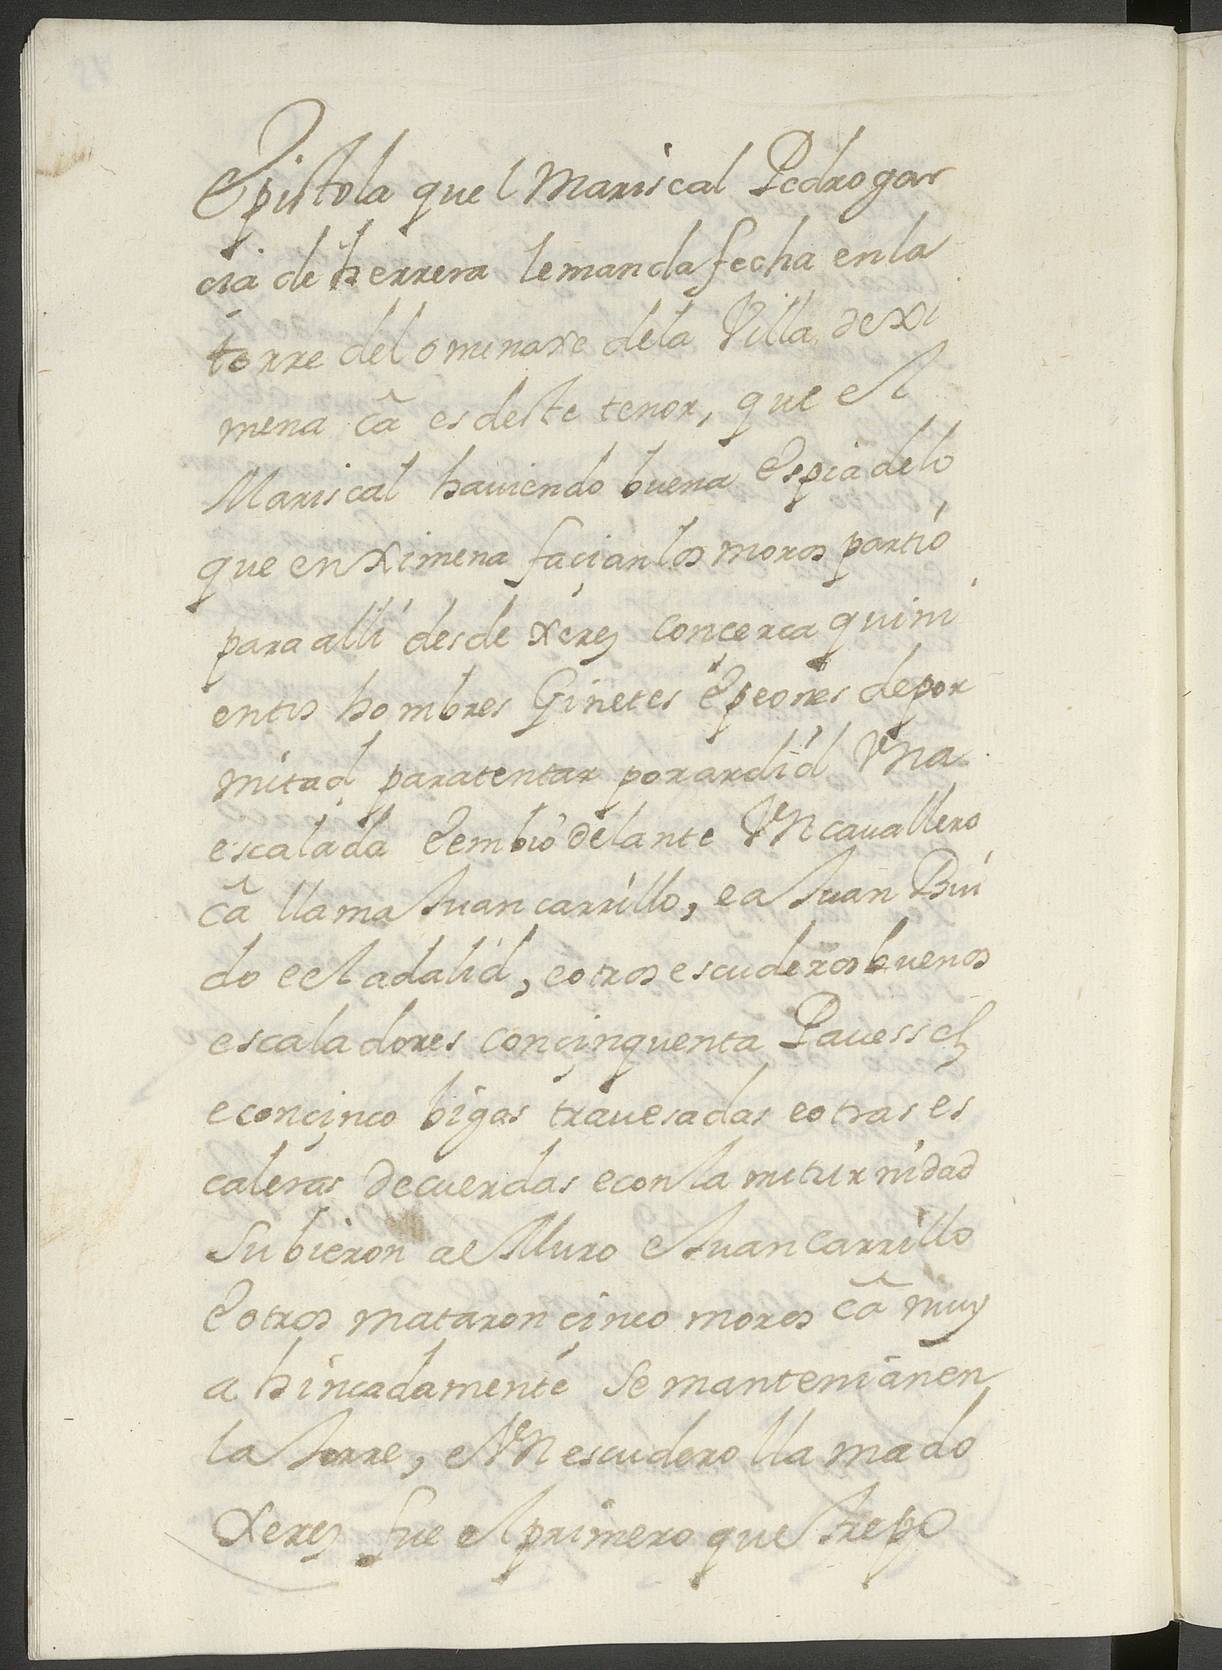 Epistola que l Mariscal Pedro gar
cia de herrera le manda fecha en la
torre del omenaxe dela Villa de Xi
mena câ es deste tenor, que el
Mariscal haviendo buena Espia delo
que en Ximena façian los moros partió
para alli desde xerez con çerca quini
entos hombres Ginetes E peones de por
mitad para tentar por ardid Vna
escalada E embió delante Vn cavallero
câ llama Juan carrillo, e a Juan Bui
do e el adalid, e otros escuderos buenos
escaladores con çinquenta Pavesses
e con çinco bigas travesadas e otras es
caleras de cuerdas e con la miturnidad
Subieron al Muro e Juan Carrillo
E otros mataron çinco moros câ muy
a hincadamente Se mantenian en
la torre, e Vn escudero llamado
Xerez fue el primero que trepo